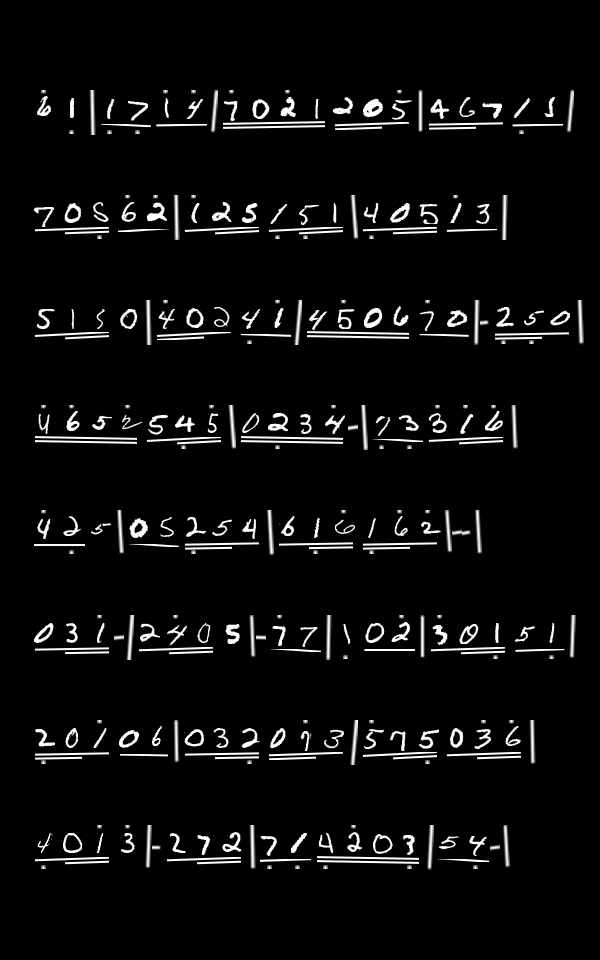 6 1 | 1 7 1 4 | 7 0 2 1 2 0 5 | 4 6 7 1 1 |
7 0 8 6 2 | 1 2 5 1 5 1 | 4 0 5 1 3 |
5 1 5 0 | 4 0 2 4 1 | 4 5 0 6 7 0 | - 2 5 0 |
4 6 5 2 5 4 5 | 0 2 3 4 - | 7 3 3 1 6 |
4 2 5 | 0 5 2 5 4 | 6 1 6 1 6 2 | - - |
0 3 1 - | 2 4 0 5 | - 7 7 | 1 0 2 | 3 0 1 5 1 |
2 0 1 0 6 | 0 3 2 0 7 3 | 5 7 5 0 3 6 |
4 0 1 3 | - 2 7 2 | 7 1 4 2 0 3 | 5 4 - |